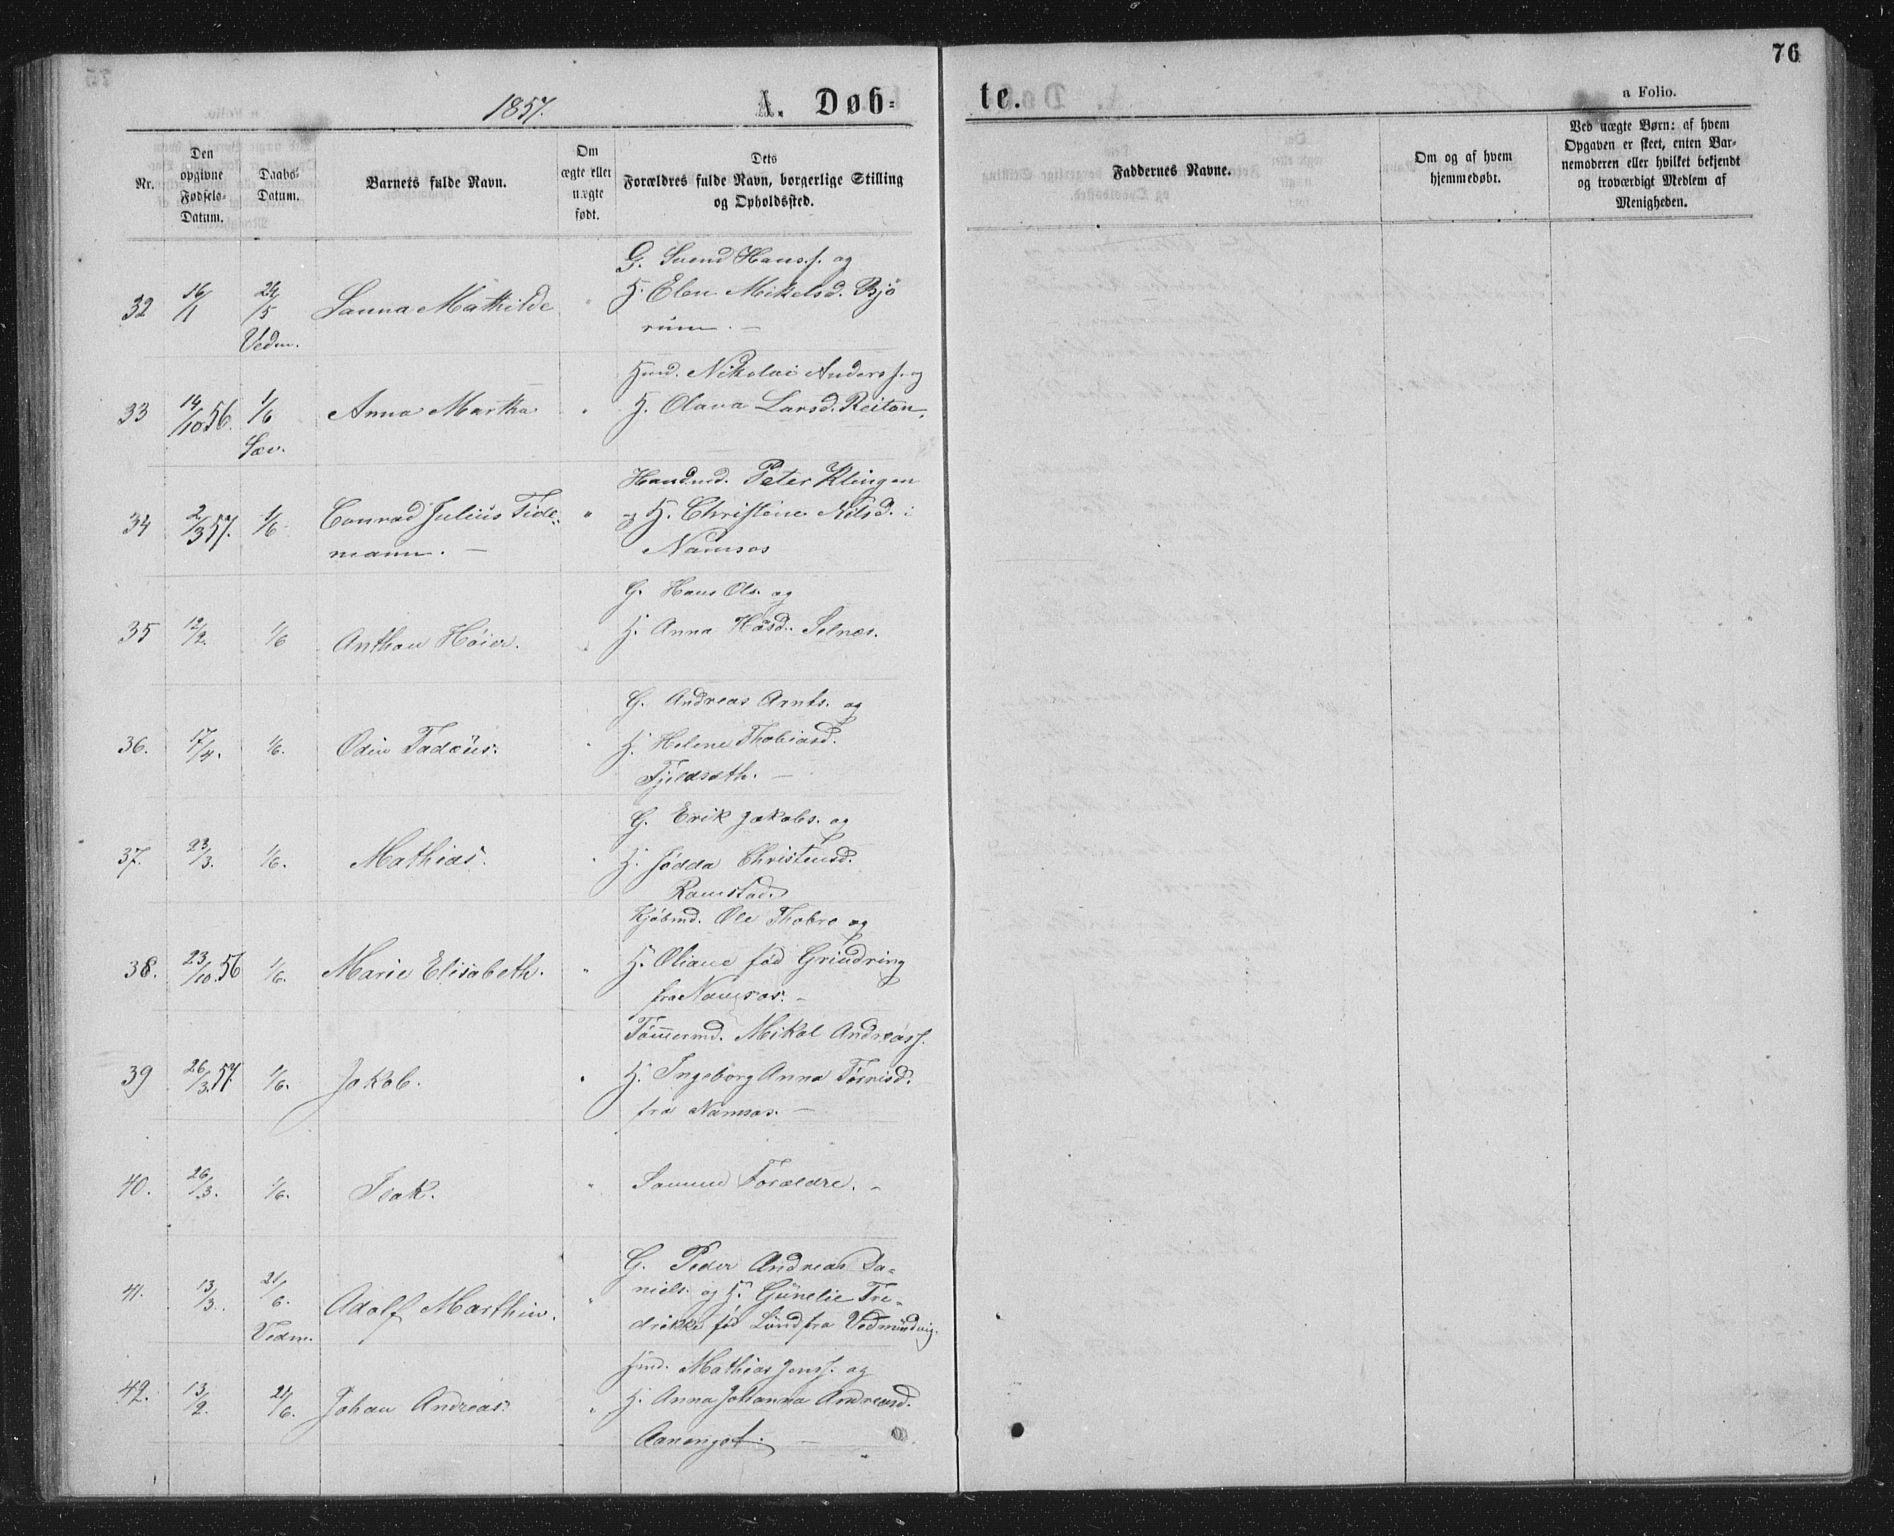 76
1857.
A. Døb-
te.
a Folio.
Nr.
Den
opgivne
Fødsels-
Datum.
Daabs-
Datum.
Barnets fulde Navn.
Om
ægte eller
uægte
født.
Dets
Forældres fulde Navn, borgerlige Stilling
og Opholdssted.
Faddernes Navne.
Om og af hvem
hjemmedøbt.
Ved uægte Børn: af hvem
Opgaven er skeet, enten Bar-
nemoderen eller hvilket bekjendt
og troværdigt Medlem af
Menigheden.
G. Svend Hanss. og
32 16/1 24/5 Sanna Mathilde " H. Elen Mikelsd. Bjö
Vedm. rum. –
Hmd. Nikolai Anderss. og
33 14/10 56. 1/6 Anna Martha " H. Olava Larsd. Reitan.
Sæv.
Handmd. Peter Klingen
34 2/3 57. 1/6 Conrad Julius Tide- " og H. Christine Nilsd. i
mann. – Namsos
G. Hans Ols. og
35 12/2. 1/6 Anthon Höier. " H. Anna Hasd. Selnæs.
G. Andreas Arnts. og
36. 17/4. 1/6. Odin Tadæus. " H. Helene Thobiasd.
Fjeldsæth. –
G. Erik Jakobs. og
37. 23/3. 1/6. Mathias. " H. Christensd.
Ramstad.
Kjöbmd. Ole Thobro og
38. 23/10. 56 1/6. Marie Elisabeth. " H. Oliane föd Grindring
fra Namsos. –
Tömmermd. Mikal Andreass.
39 26/3. 57. 1/6. Jakob. " H. Ingeborg Anna
fra Namsos. –
40. 26/3. 1/6. Isak. " Samme Forældre. –
G. Peder Andreas Da-
41. 13/3. 21/6. Adolf Marthin. " niels. og H. Gunelie Fre-
Vedm. drikke föd Lund fra Vedmundvig.
Hmd. Mathias Jenss. og
42. 13/2. 21/6. Johan Andreas. " H. Anna Johanna Andreasd.